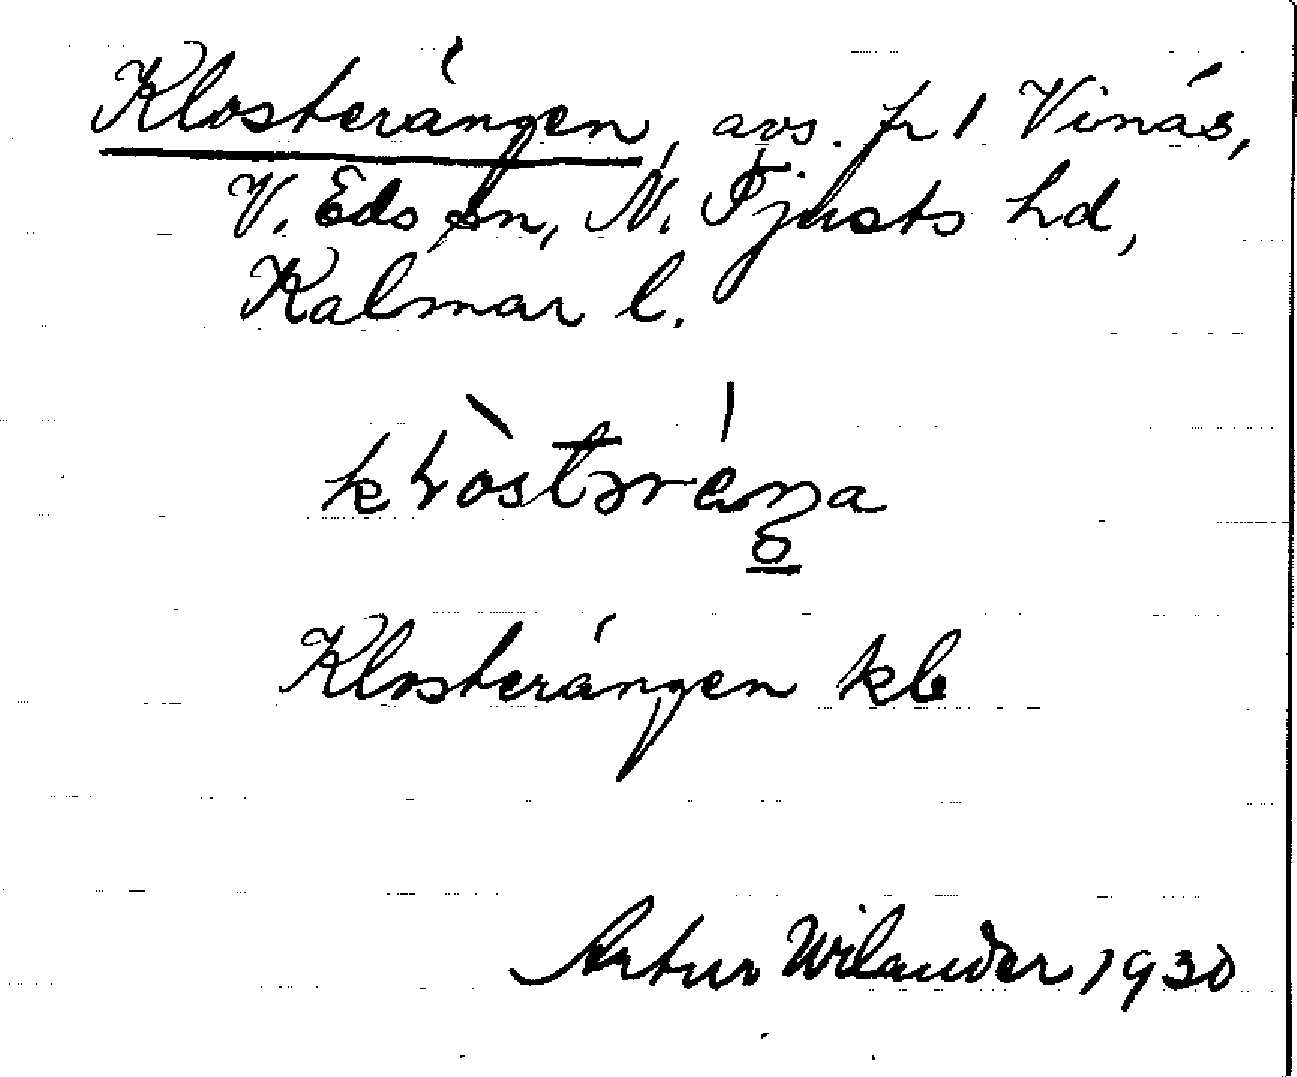 Klosterängen, avs. fr 1 Vinäs,
V. Eds sn, N. Tjusts hd,
Kalmar l.
Klosterängen kb
Artur Wilander 1930